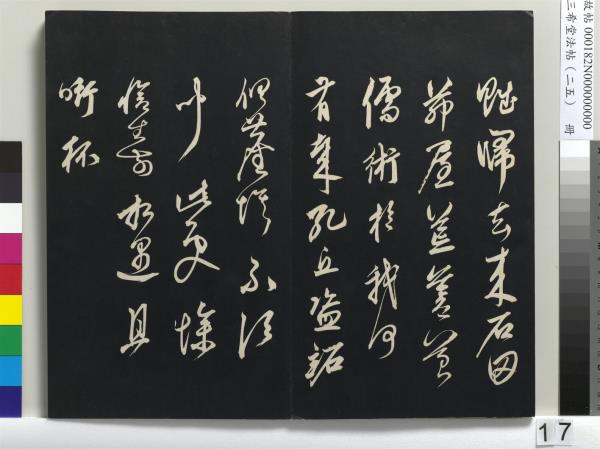 賦歸去來石田
茅屋荒蒼苔
儒術於我何
有哉孔丘盜跖
俱塵埃不須
聞此意慘
愴生前相遇且
銜杯
故帖 000182N000000000
三希堂法帖(二五) 冊
17